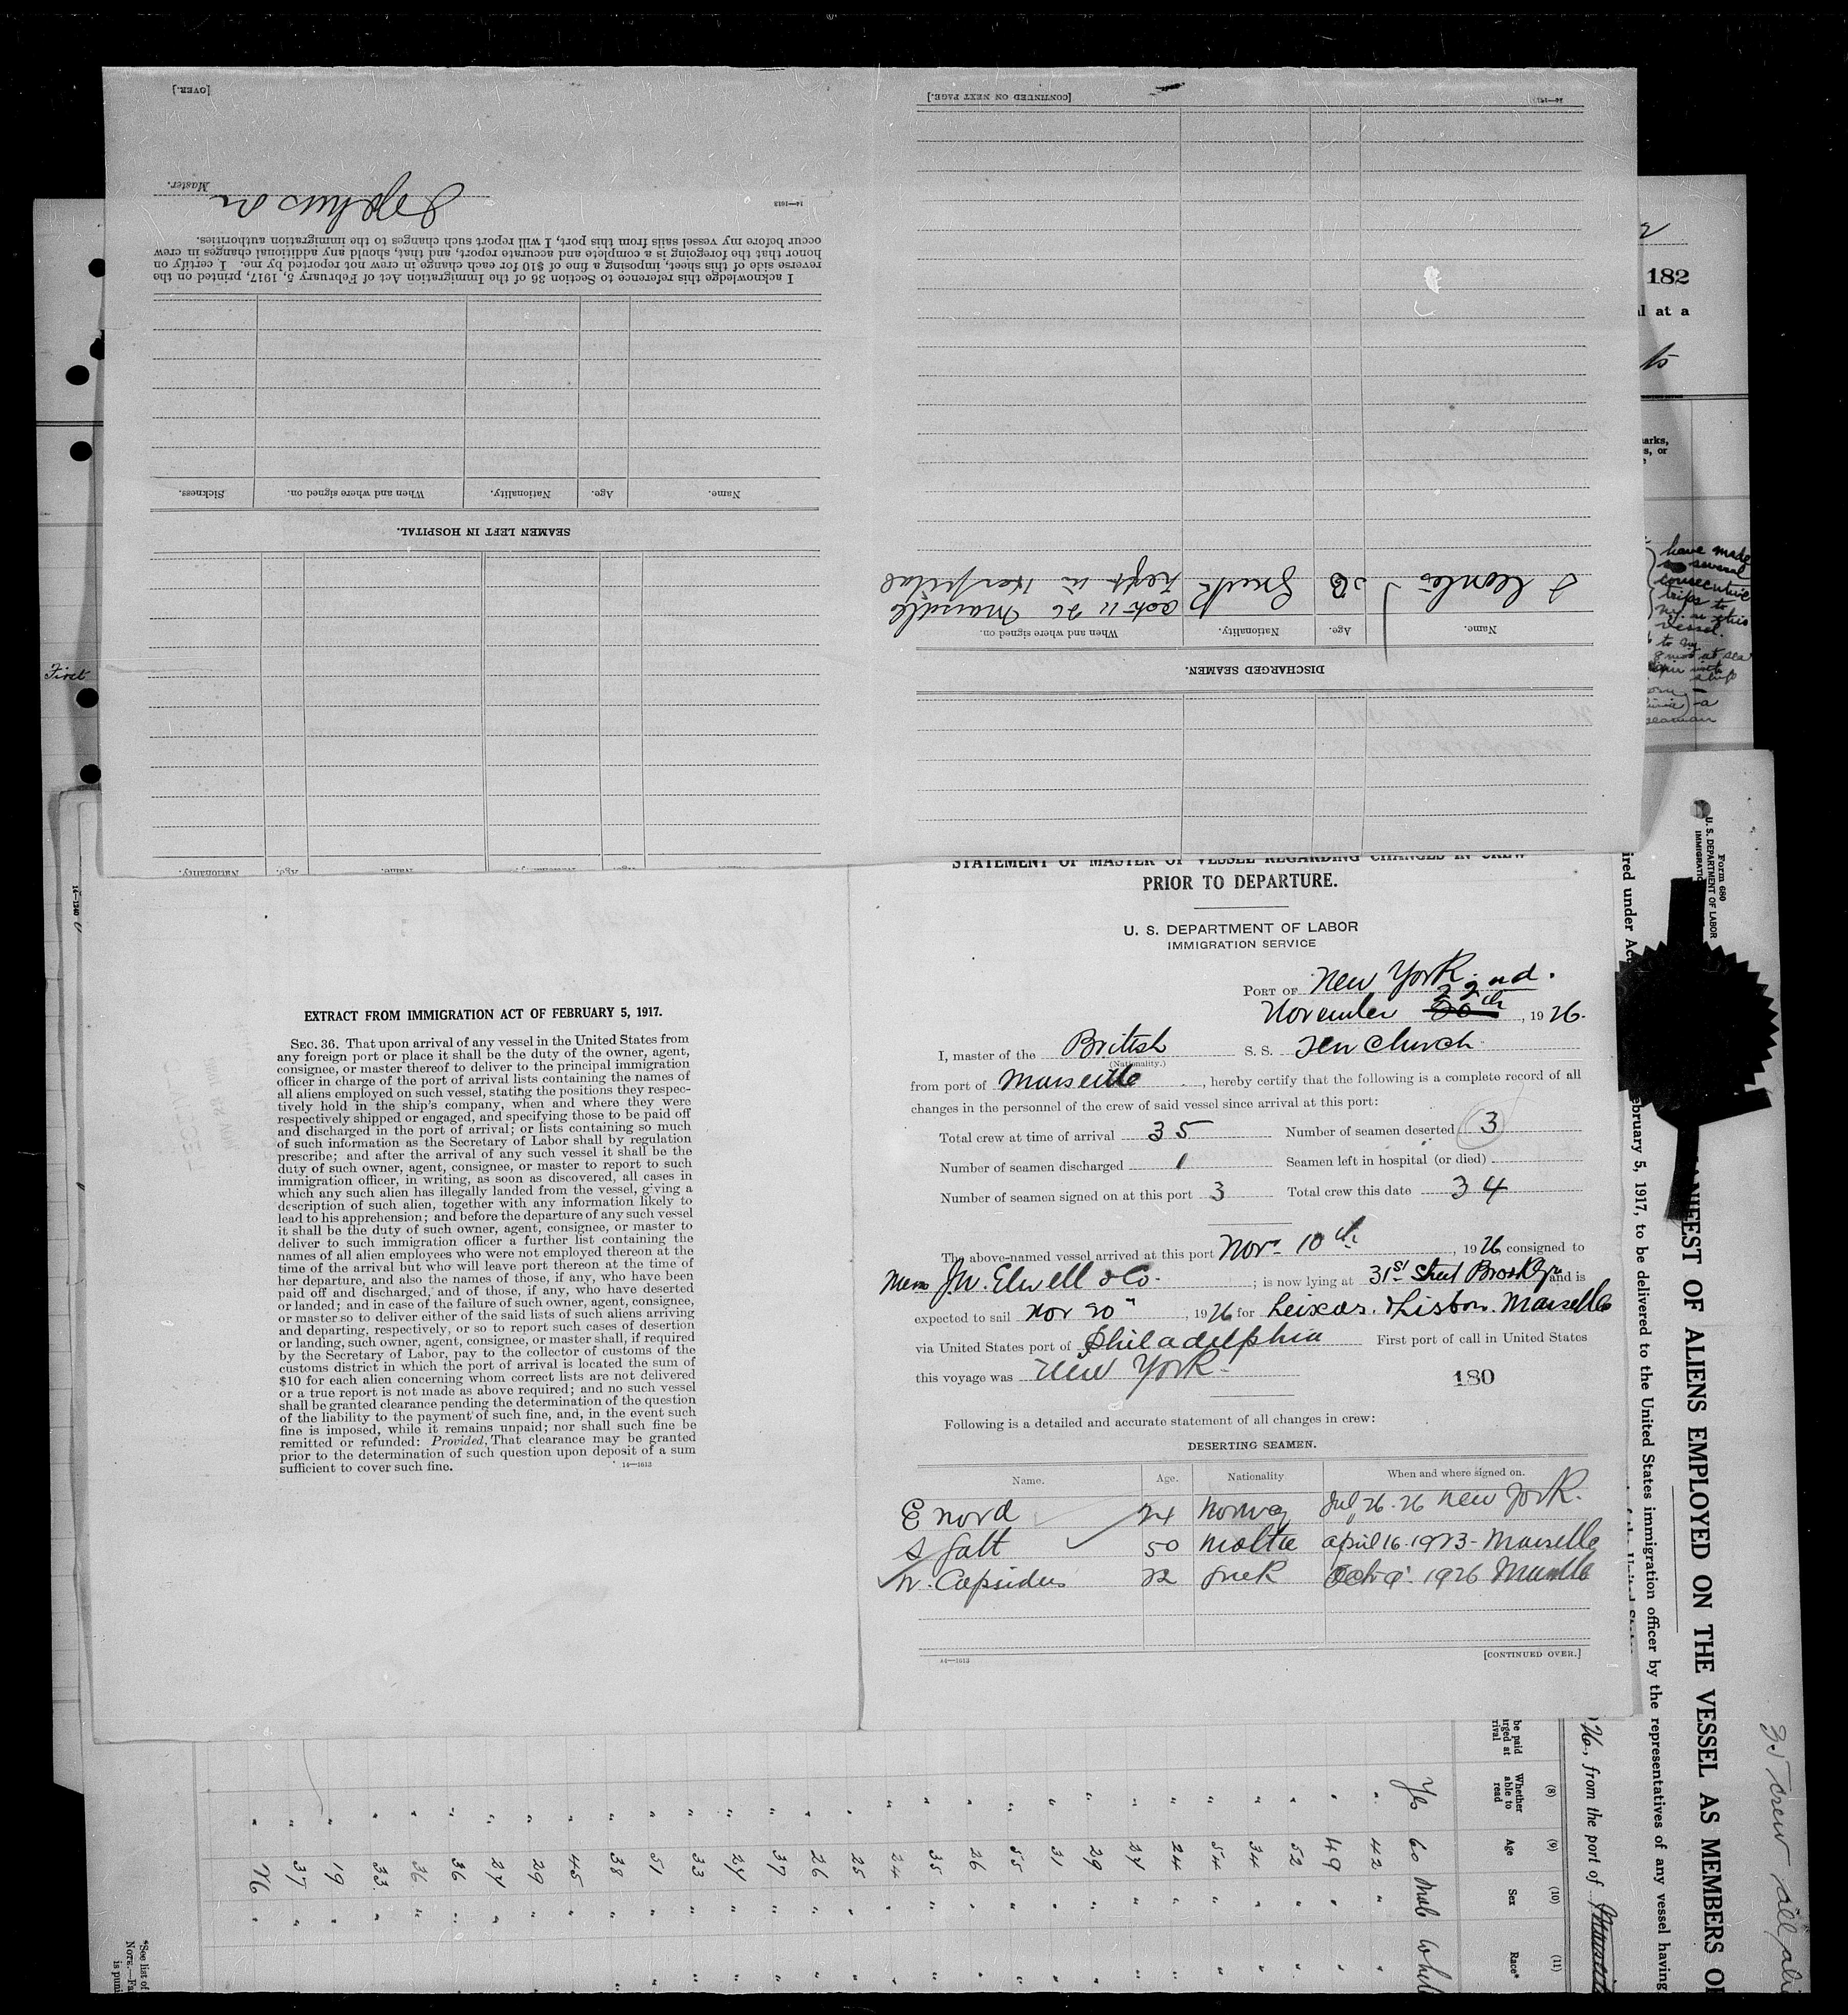 [OVER.]
Master.
14—1613
I acknowledge this reference to Section 36 of the Immigration Act of February 5, 1917, printed on the
reverse side of this sheet, imposing a fine of $10 for each change in crew not reported by me. I certify on
honor that the foregoing is a complete and accurate report, and that, should any additional changes in crew
occur before my vessel sails from this port, I will report such changes to the immigration authorities.
Name. Age. Nationality. When and where signed on. Sickness.
SEAMEN LEFT IN HOSPITAL.
Name. Age. Name. Age. Nationality.
[CONTINUED ON NEXT PAGE.]
DISCHARGED SEAMEN.
Name. Age. Nationality. When and where signed on.
26 Greek Oct 11 26 Marseille
Left in Hospital
182
al at a
arks,
s, or
have made
several
consecutive
trips to
N.Y. in this
vessel.
to NY
at sea
ship
seaman
First
14—1240
EXTRACT FROM IMMIGRATION ACT OF FEBRUARY 5, 1917.
SEC. 36. That upon arrival of any vessel in the United States from
any foreign port or place it shall be the duty of the owner, agent,
consignee, or master thereof to deliver to the principal immigration
officer in charge of the port of arrival lists containing the names of
all aliens employed on such vessel, stating the positions they respec-
tively hold in the ship's company, when and where they were
respectively shipped or engaged, and specifying those to be paid off
and discharged in the port of arrival; or lists containing so much
of such information as the Secretary of Labor shall by regulation
prescribe; and after the arrival of any such vessel it shall be the
duty of such owner, agent, consignee, or master to report to such
immigration officer, in writing, as soon as discovered, all cases in
which any such alien has illegally landed from the vessel, giving a
description of such alien, together with any information likely to
lead to his apprehension; and before the departure of any such vessel
it shall be the duty of such owner, agent, consignee, or master to
deliver to such immigration officer a further list containing the
names of all alien employees who were not employed thereon at the
time of the arrival but who will leave port thereon at the time of
her departure, and also the names of those, if any, who have been
paid off and discharged, and of those, if any, who have deserted
or landed; and in case of the failure of such owner, agent, consignee,
or master so to deliver either of the said lists of such aliens arriving
and departing, respectively, or so to report such cases of desertion
or landing, such owner, agent, consignee, or master shall, if required
by the Secretary of Labor, pay to the collector of customs of the
customs district in which the port of arrival is located the sum of
$10 for each alien concerning whom correct lists are not delivered
or a true report is not made as above required; and no such vessel
shall be granted clearance pending the determination of the question
of the liability to the payment of such fine, and, in the event such
fine is imposed, while it remains unpaid; nor shall such fine be
remitted or refunded: Provided, That clearance may be granted
prior to the determination of such question upon deposit of a sum
sufficient to cover such fine.
14—1613
STATEMENT OF MASTER OF VESSEL REGARDING CHANGES IN CREW
PRIOR TO DEPARTURE.
U. S. DEPARTMENT OF LABOR
IMMIGRATION SERVICE
PORT OF New York
22nd.
November 20th, 1926.
I, master of the British S. S. Fenchurch
(Nationality.)
from port of Marseille, hereby certify that the following is a complete record of all
changes in the personnel of the crew of said vessel since arrival at this port:
Total crew at time of arrival 35 Number of seamen deserted 3
Number of seamen discharged 1 Seamen left in hospital (or died)
Number of seamen signed on at this port 3 Total crew this date 34
The above-named vessel arrived at this port Nov 10th, 1926 consigned to
Mess J.W. Elwell & Co.; is now lying at 31st Street Brooklyn and is
expected to sail Nov 20", 1926 for Leixos. & Lisbon. Marseille
via United States port of Philadelphia First port of call in United States
this voyage was New York.
180
Following is a detailed and accurate statement of all changes in crew:
DESERTING SEAMEN.
Name. Age. Nationality When and where signed on.
E Nord 24 Norway Jul 26-26 New York.
S Galt 50 Malta April 16-1923-Marseille
N. Capsidus 22 Greek Oct 9. 1926 Marseille
14—1613
[CONTINUED OVER.]
Form 680
U. S. DEPARTMENT OF LABOR
IMMIGRATION
MANIFEST OF ALIENS EMPLOYED ON THE VESSEL AS MEMBERS OF
ired under Act
ebruary 5, 1917, to be delivered to the United States immigration officer by the representatives of any vessel having
26, from the port of Marseille
35 crew all
be paid
rged at
rival
(8) Whether able to read
(9) Age
(10) Sex
(11) Race*
Yes 60 Male White
" 42 "
" 49 "
" 52 "
" 34 "
" 54 "
" 24 "
" 27 "
" 29 "
" 31 "
" 55 "
" 26 "
" 35 "
" 24 "
" 25 "
" 26 "
" 37 "
" 24 "
" 33 "
" 51 "
" 38 "
" 45 "
" 29 "
" 27 "
" 36 "
" 36 "
" 33 "
" 19 "
" 37 "
" 26 "
*See list of
NOTE.—Fa
is puni